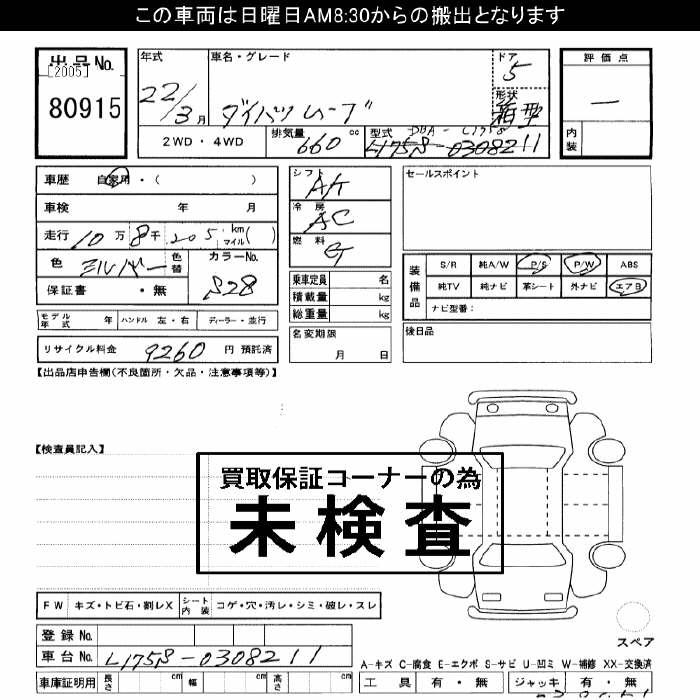 この車両は日曜日AM8:30からの搬出となります
出品No.
[2005]
80915
年式 22/3月
車名・グレード ダイハツムーブ
ドア 5
形状 箱型
評価点 —
内装
2WD・4WD
排気量 660 cc
型式 DBA-L175S
L175S-0308211
車歴 自家用・( )
車検 年 月
走行 10万8千205 km マイル( )
色 シルバー 色替
カラーNo. S28
保証書 ・無
シフト AT
冷房 AC
燃料 G
乗車定員 名
積載量 kg
総重量 kg
名変期限 月 日
セールスポイント
装備品
S/R 純A/W P/S P/W ABS
純TV 純ナビ 革シート 外ナビ エアB
ナビ型番:
後日品
モデル年式 年 ハンドル 左・右 ディーラー・並行
リサイクル料金 9260 円 預託済
【出品店申告欄(不良箇所・欠品・注意事項等)】
【検査員記入】
買取保証コーナーの為
未検査
FW キズ・トビ石・割レX シート内装 コゲ・穴・汚レ・シミ・破レ・スレ
登録No.
車台No. L175S-0308211
車庫証明用 長さ cm 幅 cm 高さ cm
スペア
A-キズ C-腐食 E-エクボ S-サビ U-凹ミ W-補修 XX-交換済
工具 有・無 ジャッキ 有・無